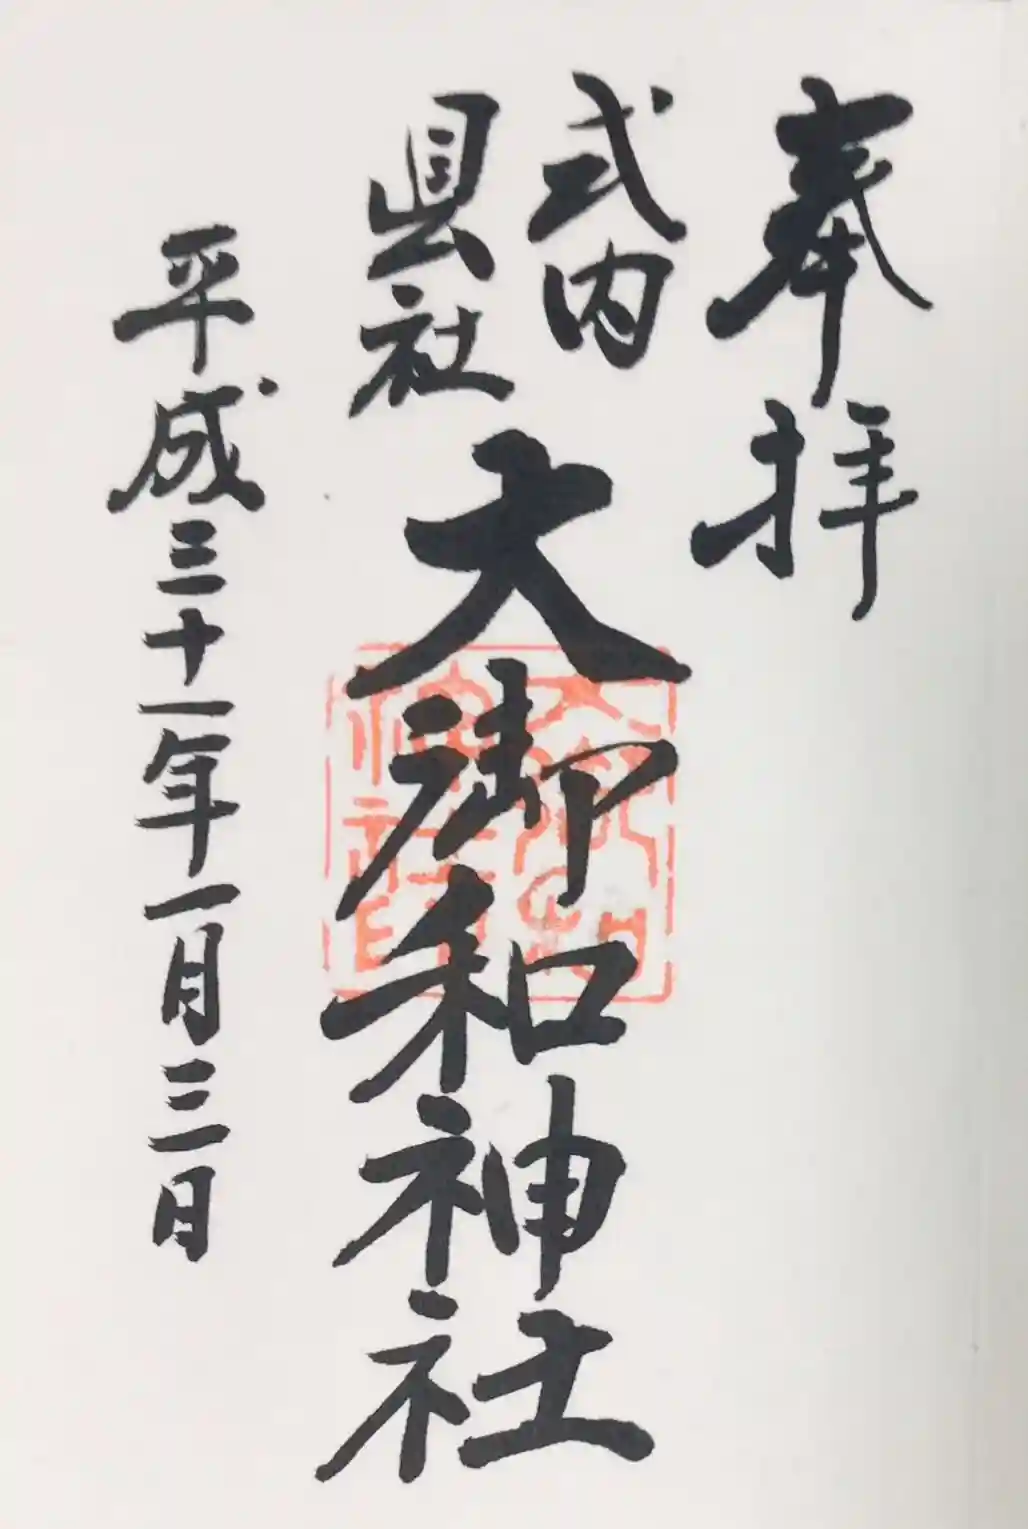 奉拝
式内
県社
大御和神社
平成三十一年一月三日